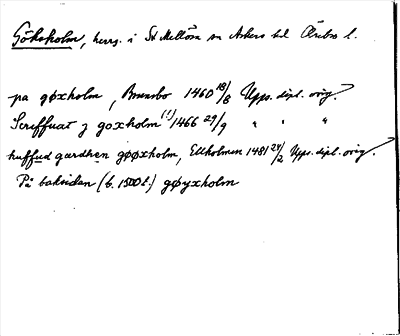 Göksholm, herrg. i St Mellösa sn Askers hd Örebro l.
pa gøxholm, Brunsbo 1460 18/8 Upps. dipl. orig.
Scriffuat j goxholm (!) 1466 29/9 " " "
huffud gardhen gøøxholm, Ettholmen 1481 24/2 Upps. dipl. orig.
På baksidan (b. 1500 t.) gøyxholm